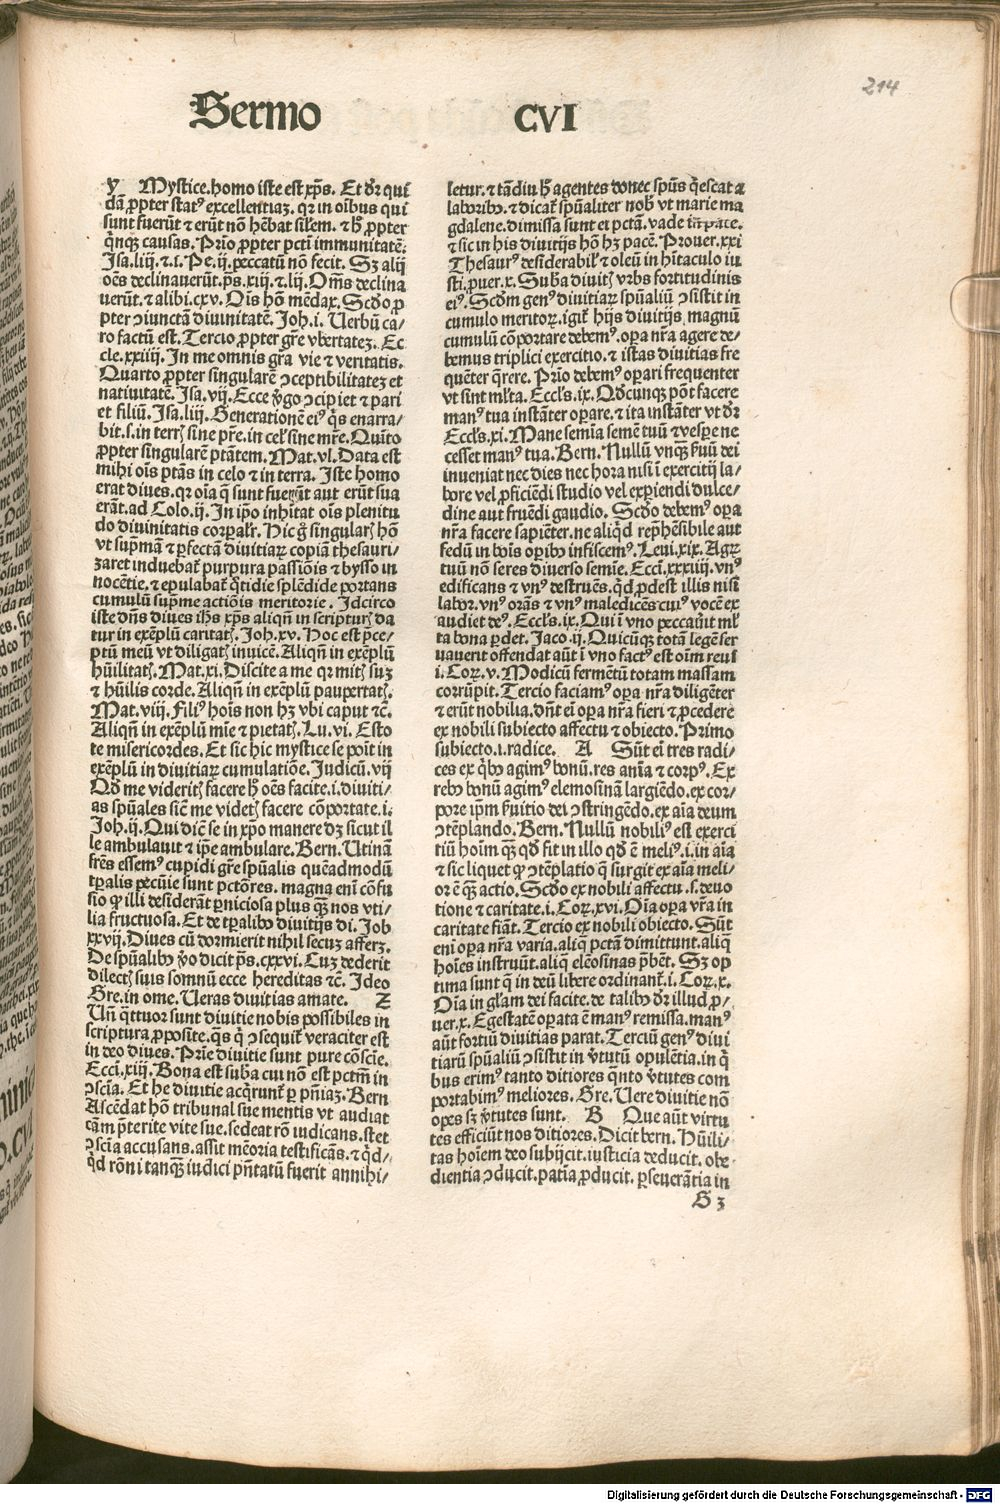 214
Sermo CVI
y Mystice.homo iste est xp̄s. Et dr̄ qui
dā ꝓpter statꝰ excellentiaꝫ. qꝛ in oībus qui
sunt fuerūt ⁊ erūt nō hēbat silem. ⁊ hͦ ꝓpter
qͥnqꝫ causas. Prīo ꝓpter pctī immunitatē:
Isa.liij. ⁊.i. Pe.ij. peccatū nō fecit. Sꝫ alij
oēs declinauerūt. pͣs.xiij. ⁊.lij. Om̄s declina
uerūt. ⁊ alibi.cxv. Oīs hō mēdax. Scd̄o ꝓ
pter ↄiunctā diuinitatē. Joh.i. Uerbū ca/
ro factū est. Tercio ꝓpter gr̄e vbertateꝫ. Ec
cle.xxiiij. In me omnis gr̄a vie ⁊ veritatis.
Quarto ꝓpter singularē ↄceptibilitateꝫ et
natiuitatē. Isa.vij. Ecce v̄go ↄcipiet ⁊ pari
et filiū. Isa.liij. Generationē eiꝰ qͥs enarra/
bit.s.in terrꝭ sine pr̄e.in cel̓ sine mr̄e. Quīto
ꝓpter singularē ptātem. Mat.vl. Data est
mihi oīs ptās in celo ⁊ in terra. Iste homo
erat diues. qꝛ oīa q̄ sunt fuerūt aut erūt sua
erāt. ad Colo.ij. In ip̄o inhītat oīs plenitu
do diuinitatis corꝑalr̄. Hic gͦ singularꝭ hō
vt supͣmā ⁊ ꝑfectā diuitiaꝝ copiā thesauri/
zaret induebat̄ purpura passiōis ⁊ bysso in
nocētie. ⁊ epulabat̄ qͦtidie splēdide portans
cumulū supͣme actiōis meritorie. Idcirco
iste dn̄s diues ih̄s xp̄s aliqn̄ in scripturꝭ da
tur in exēplū caritatꝭ. Joh.xv. Hoc est p̄ce/
ptū meū vt diligatꝭ inuicē. Aliqn̄ in exēplū
hūilitatꝭ. Mat.xi. Discite a me qꝛ mitꝭ suꝫ
⁊ hūilis corde. Aliqn̄ in exēplū paupertatꝭ.
Mat.viij. Filiꝰ hoīs non hꝫ vbi caput ⁊c̄.
Aliqn̄ in exēplū mīe ⁊ pietatꝭ. Lu.vi. Esto
te misericordes. Et sic hic mystice se poīt in
exēplū in diuitiaꝝ cumulatiōe. Judicū.vij
Qd̄ me videritꝭ facere hͦ oēs facite.i.diuiti/
as spūales sic̄ me videtꝭ facere cōportate.i.
Joh.ij. Qui dic̄ se in xp̄o manere dꝫ sicut il
le ambulauit ⁊ ip̄e ambulare. Bern. Utinā
fr̄es essemꝰ cupidi gr̄e spūalis quēadmodū
tꝑalis pecūie sunt pctōres. magna enī cōfu
sio ꝙ illi desiderāt ꝑniciosa plus qꝫ̄ nos vti/
lia fructuosa. Et de tꝑalibꝰ diuitijs dī. Job
xxvij. Diues cū dormierit nihil secuꝫ afferꝫ.
De spūalibꝰ v̄o dicit pͣs.cxxvi. Cuꝫ dederit
dilectꝭ suis somnū ecce hereditas ⁊c̄. Ideo
Gre.in ome. Ueras diuitias amate. Z
Un̄ qͣttuor sunt diuitie nobis possibiles in
scriptura ꝓposite. qͣs qͥ ↄsequit̄ veraciter est
in deo diues. Prīe diuitie sunt pure cōscīe.
Ecci.xiij. Bona est suba cui nō est pctm̄ in
ↄscīa. Et he diuitie acqͥrunt̄ ꝑ pn̄iaꝫ. Bern
Ascēdat hō tribunal sue mentis vt audiat
cām p̄terite vite sue. sedeat rō iudicans. stet
ↄscīa accusans. assit mēoria testificās. ⁊ qͥd/
qͥd rōni tanqꝫ iudici pn̄tatū fuerit annihi/
letur. ⁊ tādiu hͦ agentes donec spūs qͥescat a
laboribꝰ. ⁊ dicat̄ spūaliter nob̓ vt marie ma
gdalene. dimissa sunt ei pctā. vade in pace.
⁊ sic in his diuitijs hō hꝫ pacē. Prouer.xxi
Thesaurꝰ desiderabil̓ ⁊ oleū in hītaculo iu
sti. ꝓuer.x. Suba diuitꝭ vrbs fortitudinis
eiꝰ. Scd̄m genꝰ diuitiaꝝ spūaliū ↄsistit in
cumulo meritoꝝ. igit̄ hijs diuitijs magnū
cumulū cōportare debemꝰ. oꝑa nr̄a agere de/
bemus triplici exercitio. ⁊ istas diuitias fre
quēter q̄rere. Prīo debemꝰ oꝑari frequenter
vt sint ml̓ta. Eccl̓s.ix. Qd̄cunqꝫ pōt facere
manꝰ tua instāter oꝑare. ⁊ ita instāter vt dr̄
Eccl̓s.xi. Mane semīa semē tuū ⁊ vesꝑe ne
cesset manꝰ tua. Bern. Nullū vnqꝫ̄ ẜuū dei
inueniat nec dies nec hora nisi ī exercitij la/
bore vel ꝓficiēdi studio vel exꝑiendi dulce/
dine aut fruēdi gaudio. Scd̄o debemꝰ oꝑa
nr̄a facere sapiēter. ne aliqͥd rep̄hēsibile aut
fedū in boīs oꝑibꝰ infiscemꝰ. Leui.xix. Agꝝ
tuū nō seres diuerso semīe. Ecci.xxxiiij. vnꝰ
edificans ⁊ vnꝰ destruēs. qͥd ꝓdest illis nisi
labor. vnꝰ orās ⁊ vnꝰ maledicēs cuiꝰ vocē ex
audiet deꝰ. Eccl̓s.ix. Qui ī vno peccauit ml̓
ta bona ꝑdet. Jaco.ij. Quicūqꝫ totā legē ser
uauerit offendat aūt ī vno factꝰ est oīm reus
i. Coꝝ.v. Modicū fermētū totam massam
corrūpit. Tercio faciamꝰ oꝑa nr̄a diligēter
⁊ erūt nobilia. dn̄t eī oꝑa nr̄a fieri ⁊ ꝓcedere
ex nobili subiecto affectu ⁊ obiecto. Primo
subiecto.i.radice. A Sūt eī tres radi/
ces ex qͥbꝰ agimꝰ bonū. res anīa ⁊ corpꝰ. Ex
rebꝰ bonū agimꝰ elemosinā largiēdo. ex cor/
pore ip̄m ẜuitio dei ↄstringēdo. ex aīa deum
ↄtēplando. Bern. Nullū nobiliꝰ est exerci
tiū hoīm qꝫ̄ qd̄ fit in illo qd̄ ē meliꝰ.i.in aīa
⁊ sic liquet ꝙ ↄtēplatio q̄ surgit ex aīa meli/
or ē qꝫ̄ actio. Scd̄o ex nobili affectu .s.deuo
tione ⁊ caritate.i. Coꝝ.xvi. Oīa oꝑa vr̄a in
caritate fiāt. Tercio ex nobili obiecto. Sūt
enī oꝑa nr̄a varia. aliq̄ pctā dimittunt. aliq̄
hoīes instruūt. aliq̄ elēosinas p̄bēt. Sꝫ op
tima sunt q̄ in deū libere ordinant̄.i. Coꝝ.x.
Oīa in gl̓am dei facite. de talibꝰ dr̄ illud.ꝓ/
uer.x. Egestatē oꝑata ē manꝰ remissa. manꝰ
aūt fortiū diuitias parat. Terciū genꝰ diui
tiarū spūaliū ↄsistit in v̄tutū opulētia. in qͥ
bus erimꝰ tanto ditiores qͣnto v̄tutes com
portabimꝰ meliores. Gre. Uere diuitie nō
opes sꝫ v̄tutes sunt. B Que aūt virtu
tes efficiūt nos ditiores. Dicit bern. Hūili/
tas hoīem deo subijcit. iusticia deducit. obe
dientia ↄducit. patīa ꝓducit. ꝑseuerātia in
G 3
Digitalisierung gefördert durch die Deutsche Forschungsgemeinschaft - DFG